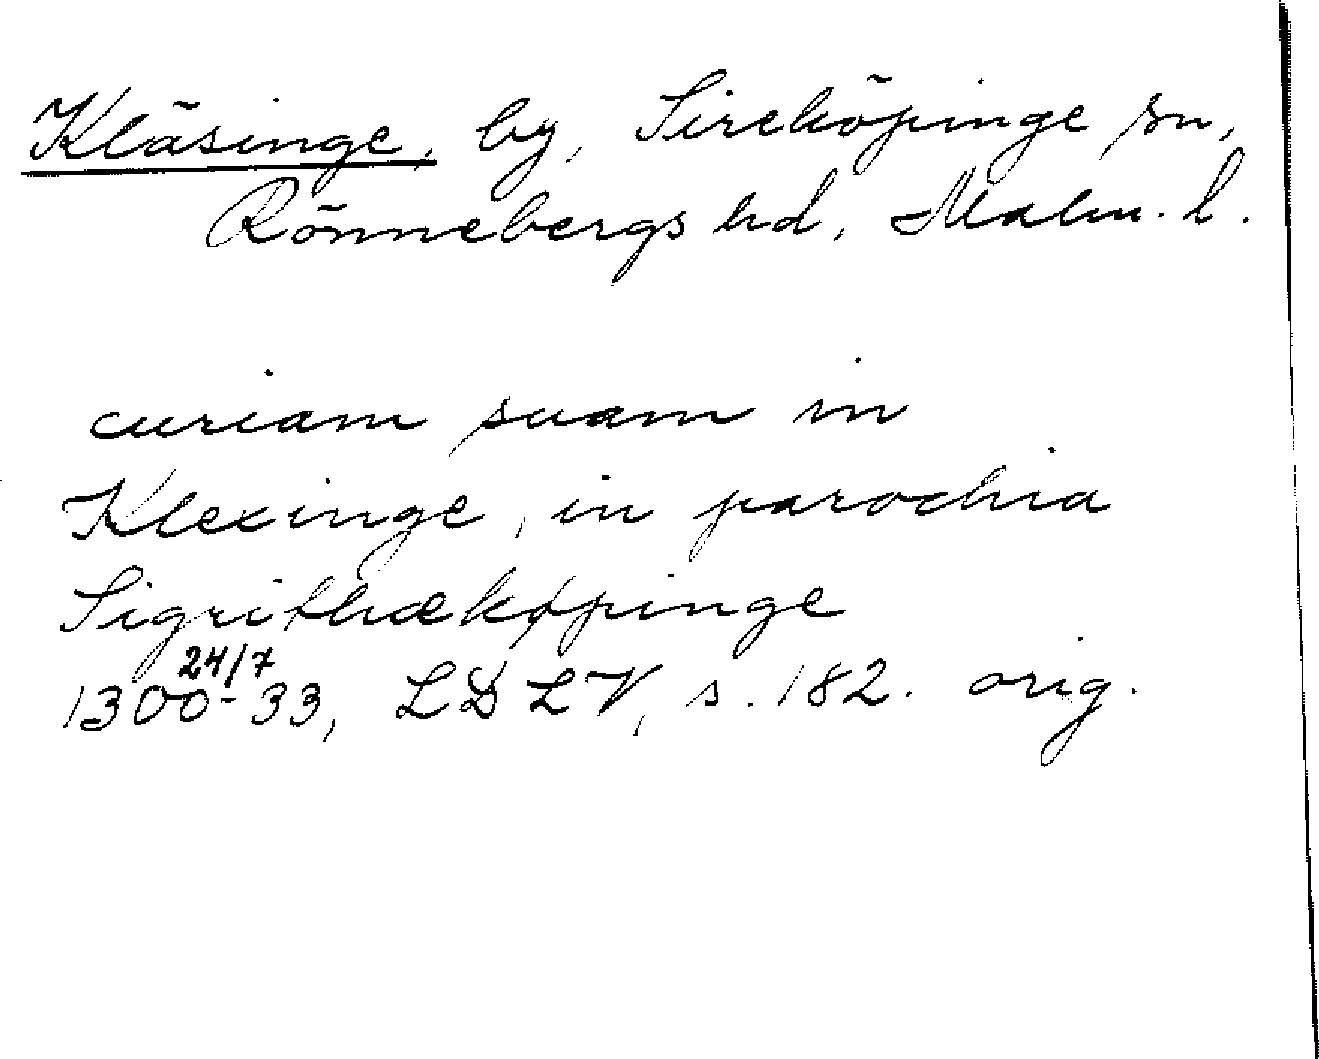 Kläsinge, by, Sireköpinge sn,
Rönnebergs hd, Malm. l.
curiam suam in
Klexinge, in parochia
Sigrithækøpinge
24/7
1300-33, LDLV, s. 182. orig.